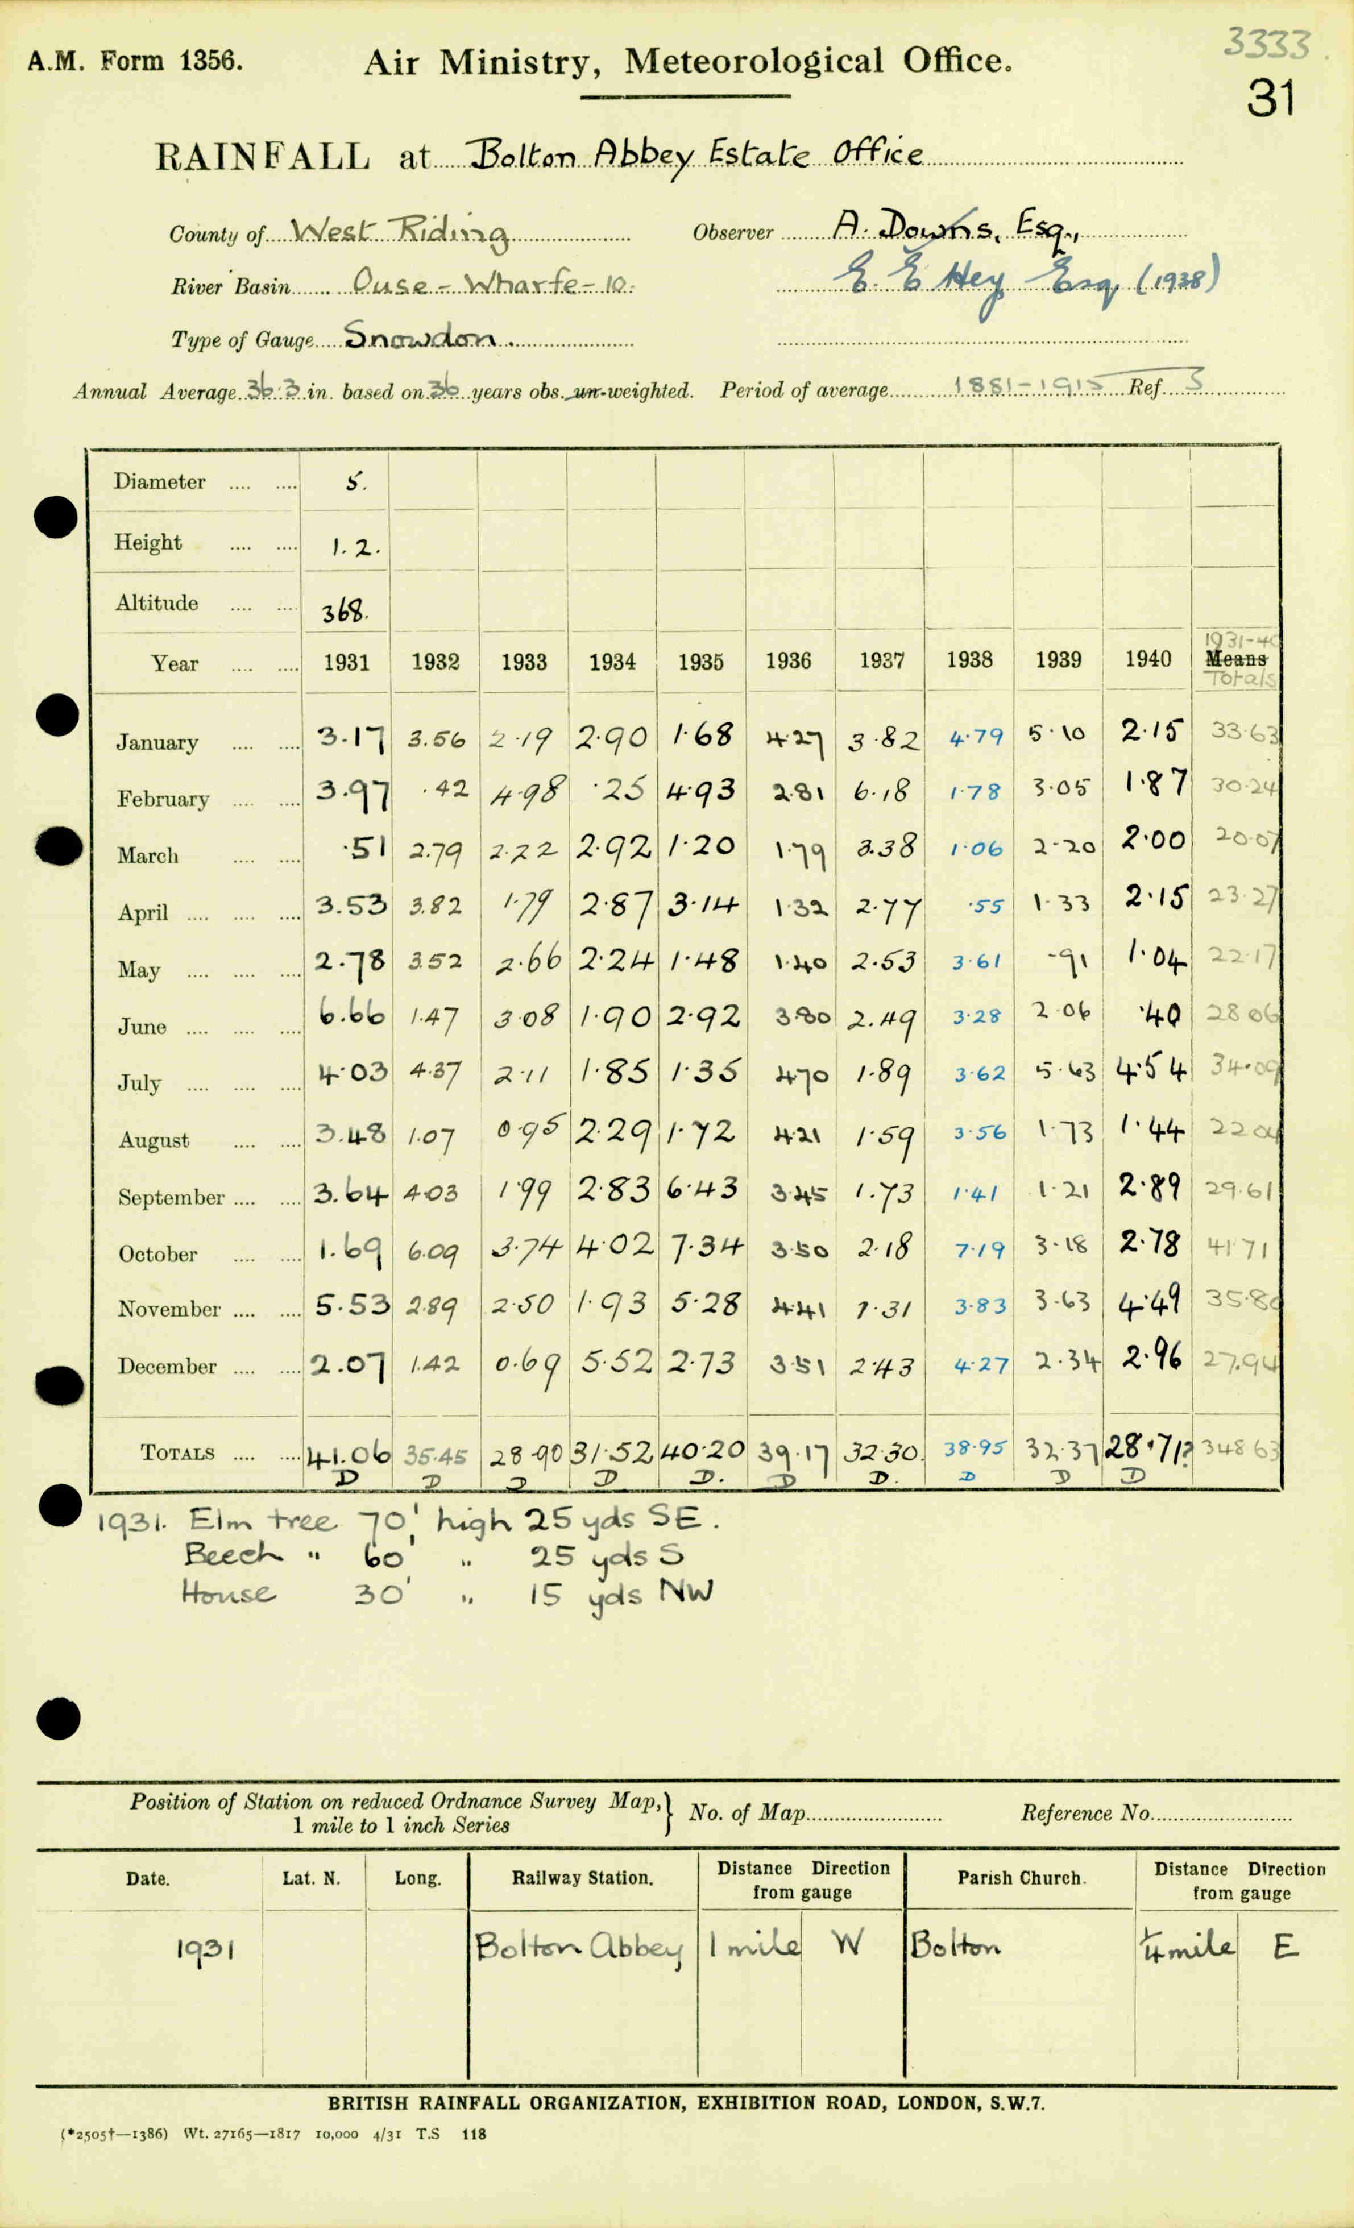 3333.
A.M. Form 1356. Air Ministry, Meteorological Office.
31
RAINFALL at Bolton Abbey Estate Office
County of West Riding Observer A. Downs, Esq.,
River Basin Ouse - Wharfe - 10. E. E Hey Esq (1938)
Type of Gauge Snowdon.
Annual Average 36.3 in. based on 36 years obs. un-weighted. Period of average 1881-1915 Ref. S
Diameter .... .... 5.
Height .... .... 1.2.
Altitude .... .... 368.
1931-40
Year .... .... 1931 1932 1933 1934 1935 1936 1937 1938 1939 1940 Means
Totals
January .... .... 3.17 3.56 2.19 2.90 1.68 4.27 3.82 4.79 5.10 2.15 33.63
February .... .... 3.97 .42 4.98 .25 4.93 2.81 6.18 1.78 3.05 1.87 30.24
March .... .... .51 2.79 2.22 2.92 1.20 1.79 3.38 1.06 2.20 2.00 20.07
April .... .... .... 3.53 3.82 1.79 2.87 3.14 1.32 2.77 .55 1.33 2.15 23.27
May .... .... .... 2.78 3.52 2.66 2.24 1.48 1.40 2.53 3.61 .91 1.04 22.17
June .... .... .... 6.66 1.47 3.08 1.90 2.92 3.80 2.49 3.28 2.06 .40 28.06
July .... .... .... 4.03 4.37 2.11 1.85 1.35 4.70 1.89 3.62 5.63 4.54 34.09
August .... .... 3.48 1.07 0.95 2.29 1.72 4.21 1.59 3.56 1.73 1.44 22.04
September .... .... 3.64 4.03 1.99 2.83 6.43 3.45 1.73 1.41 1.21 2.89 29.61
October .... .... 1.69 6.09 3.74 4.02 7.34 3.50 2.18 7.19 3.18 2.78 41.71
November .... .... 5.53 2.89 2.50 1.93 5.28 4.41 1.31 3.83 3.63 4.49 35.80
December .... .... 2.07 1.42 0.69 5.52 2.73 3.51 2.43 4.27 2.34 2.96 27.94
TOTALS .... .... 41.06 35.45 28.90 31.52 40.20 39.17 32.30. 38.95 32.37 28.71? 348.63
D D D D D. D D. D D D
1931. Elm tree 70' high 25 yds SE.
Beech " 60' " 25 yds S
House 30' " 15 yds NW
Position of Station on reduced Ordnance Survey Map, } No. of Map Reference No.
1 mile to 1 inch Series
Date. Lat. N. Long. Railway Station. Distance Direction from gauge Parish Church. Distance Direction from gauge
1931 Bolton Abbey 1 mile W Bolton 1/4 mile E
BRITISH RAINFALL ORGANIZATION, EXHIBITION ROAD, LONDON, S.W.7.
(*2505†—1386) Wt. 27165—1817 10,000 4/31 T.S 118